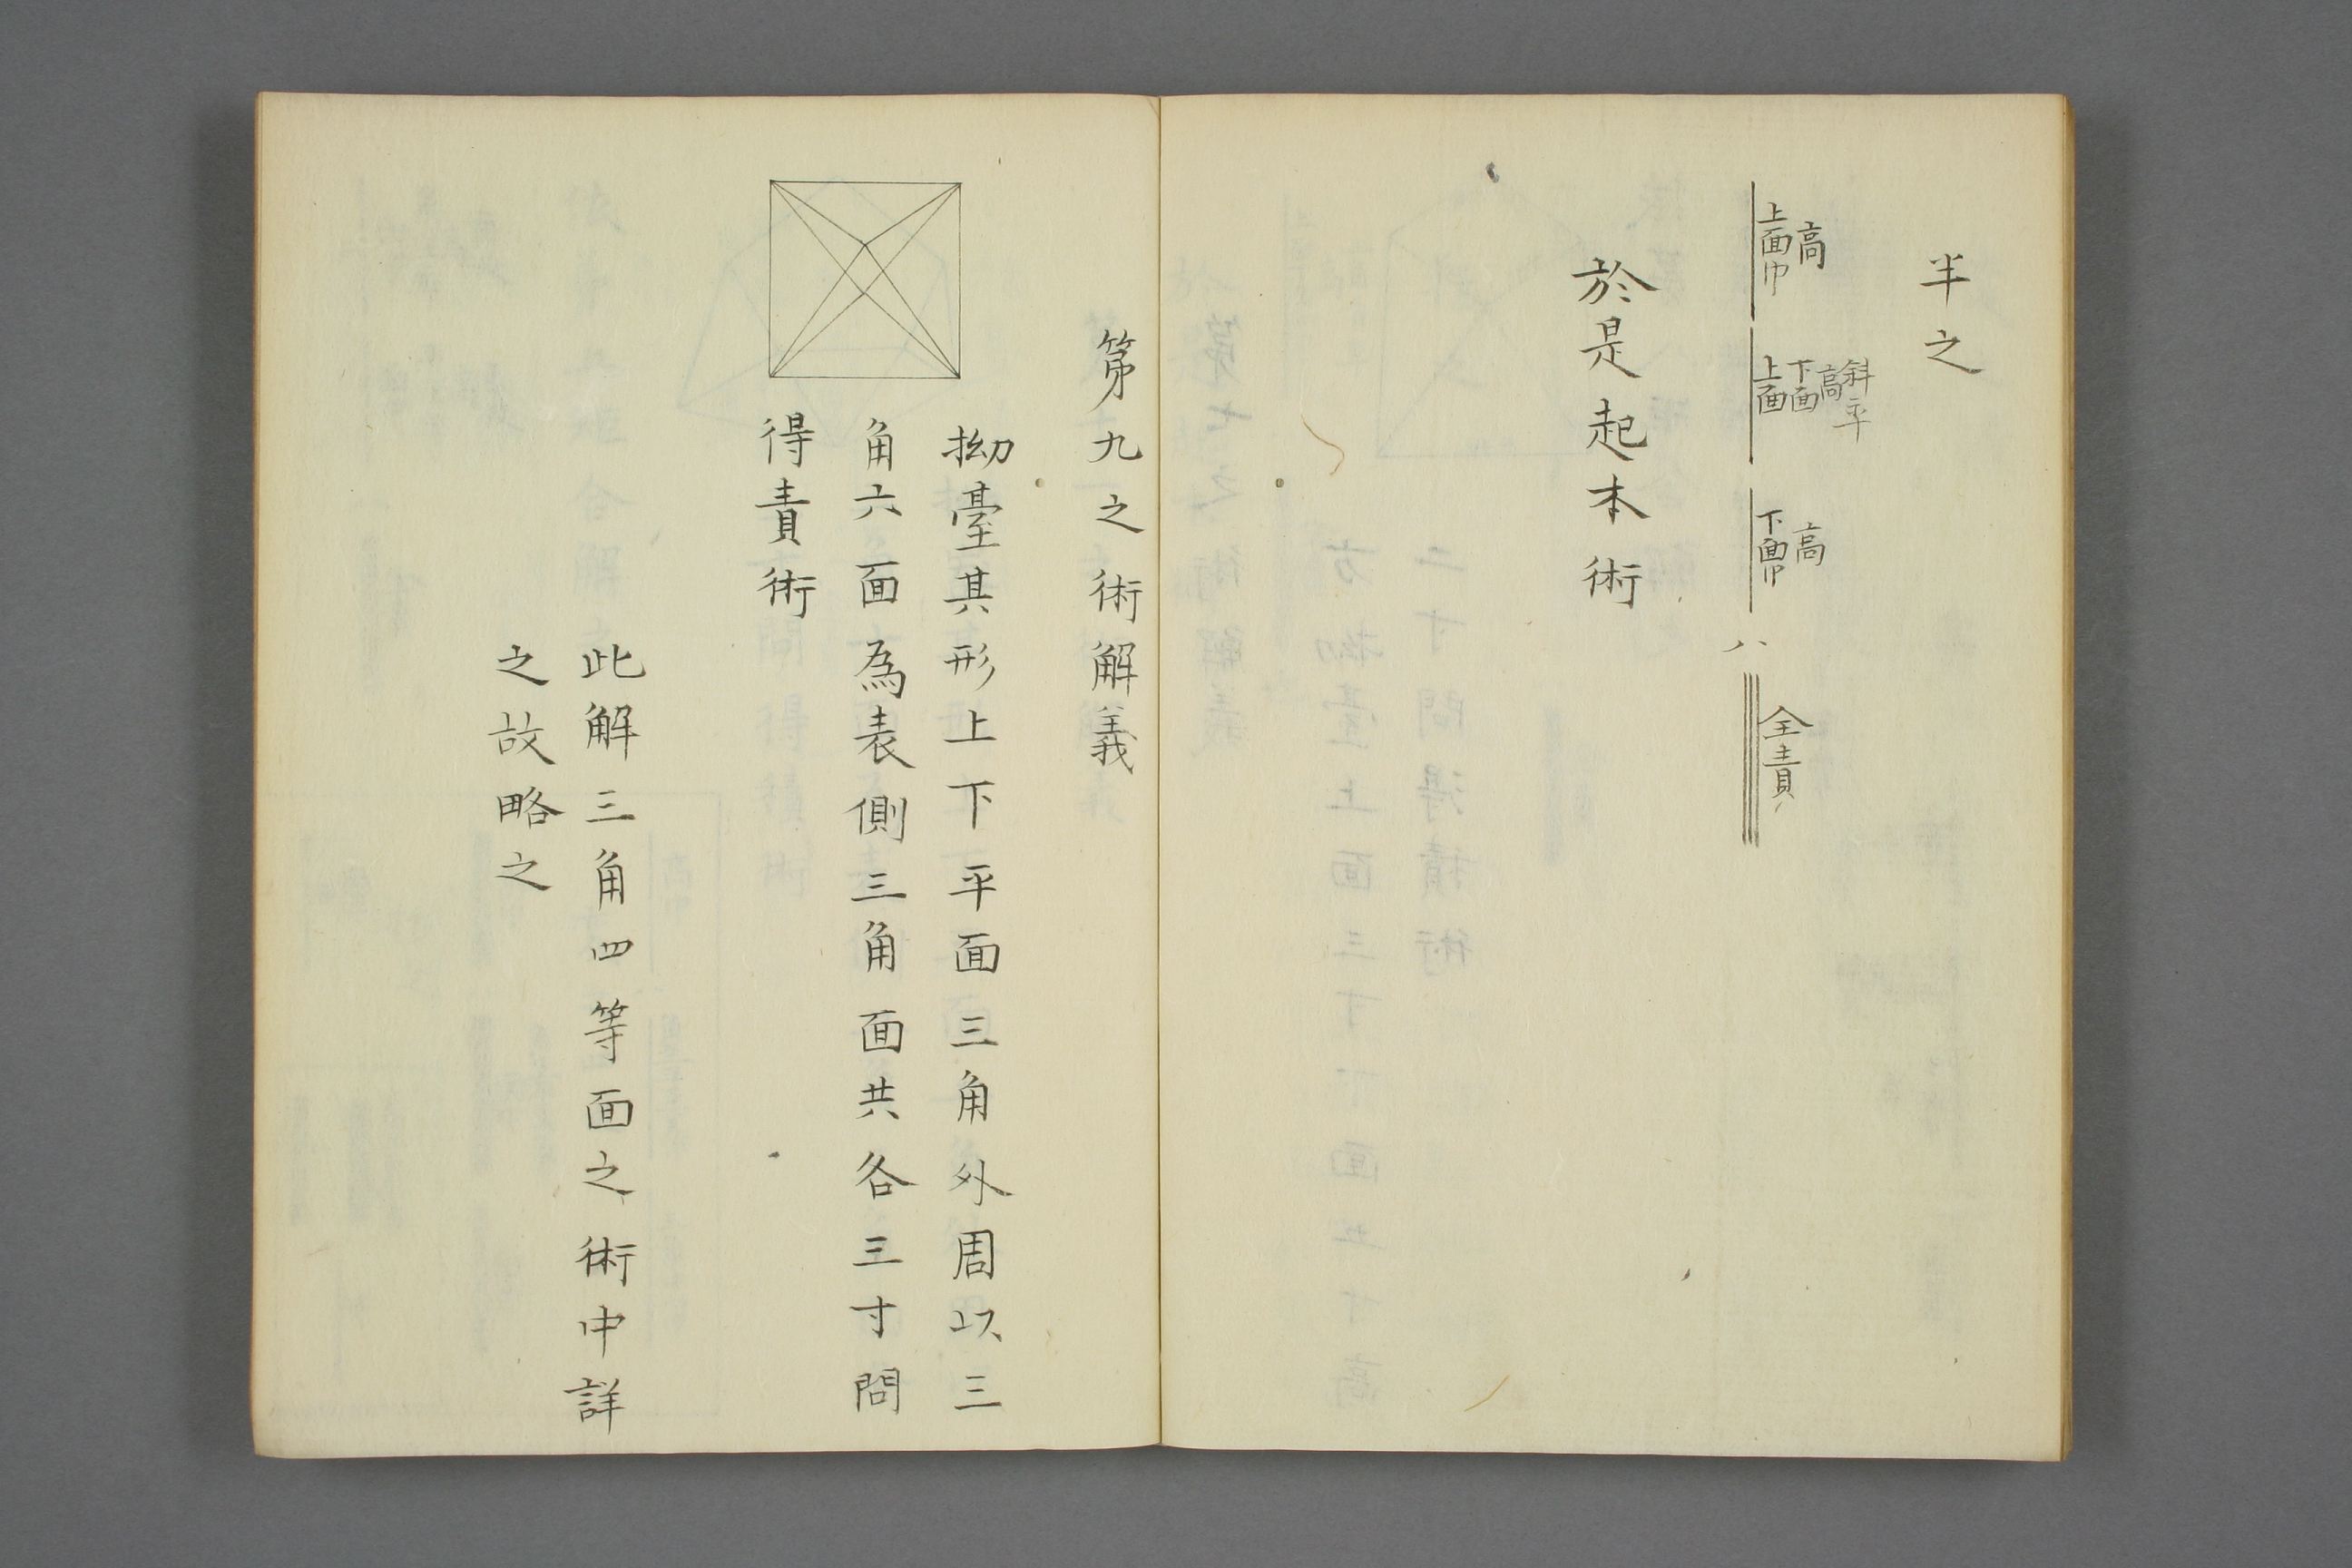 半之
高
上面巾
斜平
高
下面
上面
高
下面巾
八
全責
於是起本術
第九之術解義
拗臺其形上下平面三角外周以三
角六面為表側三角面共各三寸問
得責術
此解三角四等面之術中詳
之故略之